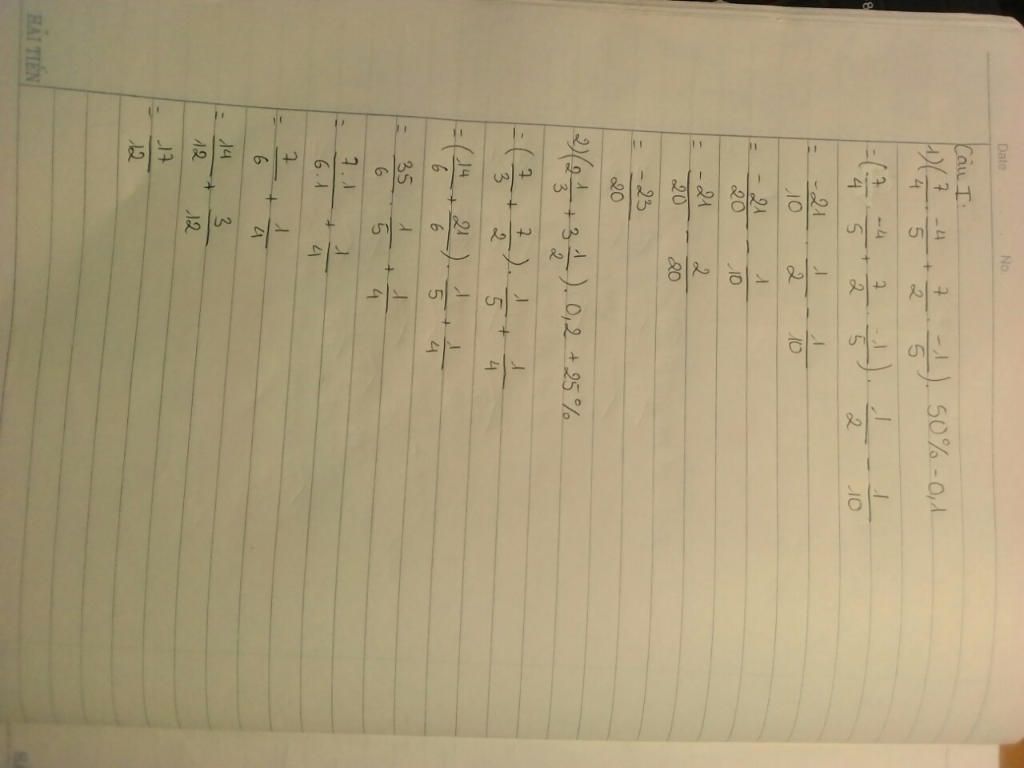 Date No.
Câu I.
1) (7/4 . -4/5 + 7/2 . -1/5) . 50% - 0,1
= (7/4 . -4/5 + 7/2 . -1/5) . 1/2 - 1/10
= -21/10 . 1/2 - 1/10
= -21/20 - 1/10
= -21/20 - 2/20
= -23/20
2) (2 1/3 + 3 1/2) . 0,2 + 25%
= (7/3 + 7/2) . 1/5 + 1/4
= (14/6 + 21/6) . 1/5 + 1/4
= 35/6 . 1/5 + 1/4
= 7.1/6.1 + 1/4
= 7/6 + 1/4
= 14/12 + 3/12
= 17/12
HẢI TIẾN